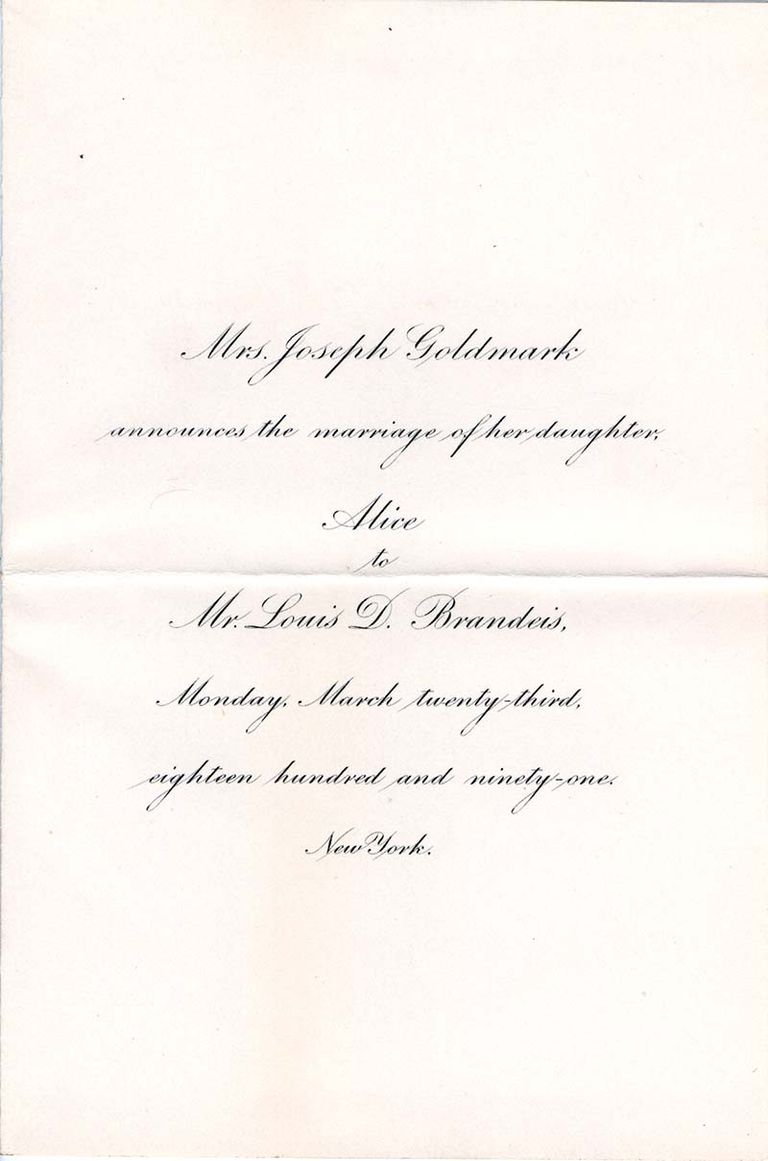 Mrs. Joseph Goldmark
announces the marriage of her daughter,
Alice
to
Mr. Louis D. Brandeis,
Monday, March twenty-third,
eighteen hundred and ninety-one.
New York.